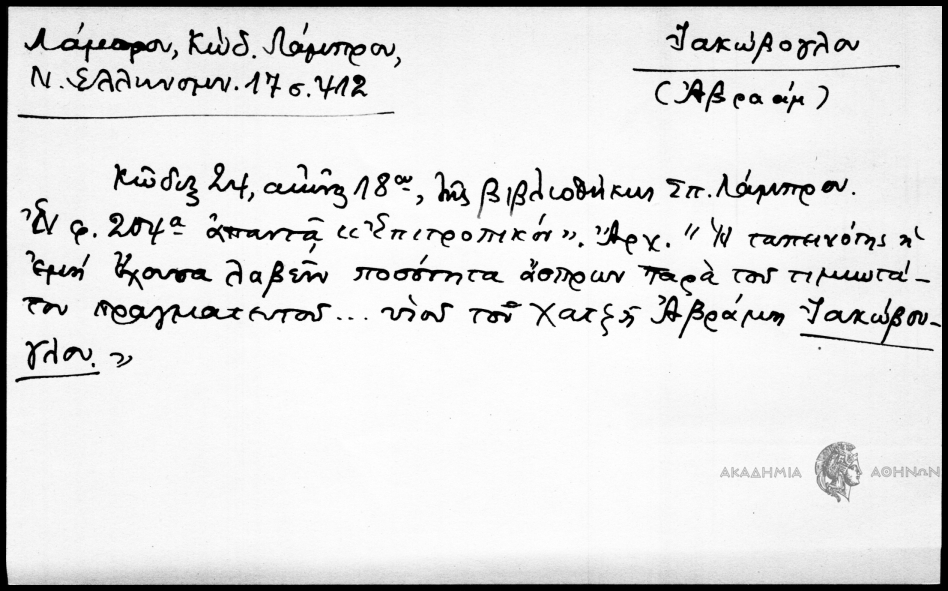 Λάμπρου, Κώδ. Λάμπρου,
Ν. Ελληνομν. 17 σ. 412
Ἰακώβογλου
(Ἀβραάμ)
Κῶδιξ 24, αἰῶνος 18ου, τῆς βιβλιοθήκης Σπ. Λάμπρου.
Ἐν φ. 204α ἀπαντᾷ "Ἐπιτροπικόν". Ἀρχ. "Ἡ ταπεινότης ἡ
ἐμὴ ἔχουσα λαβεῖν ποσότητα ἄσπρων παρὰ τοῦ τιμιωτά-
του πραγματευτοῦ... υἱοῦ τοῦ χατζῆ Ἀβράμη Ἰακώβου-
γλου."
ΑΚΑΔΗΜΙΑ ΑΘΗΝΩΝ